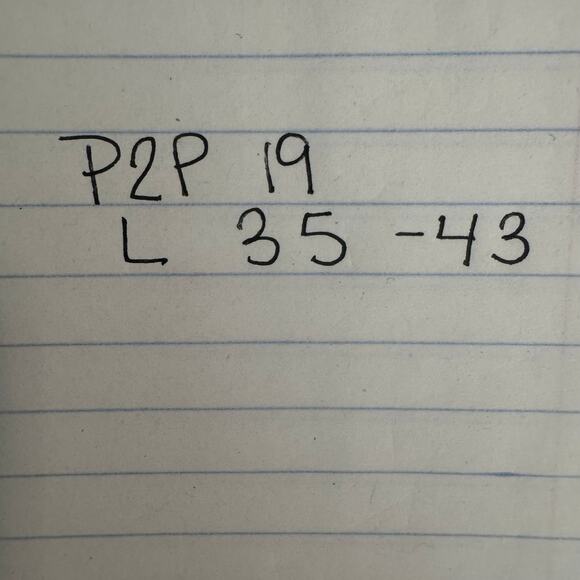 P2P 19
L 35 -43